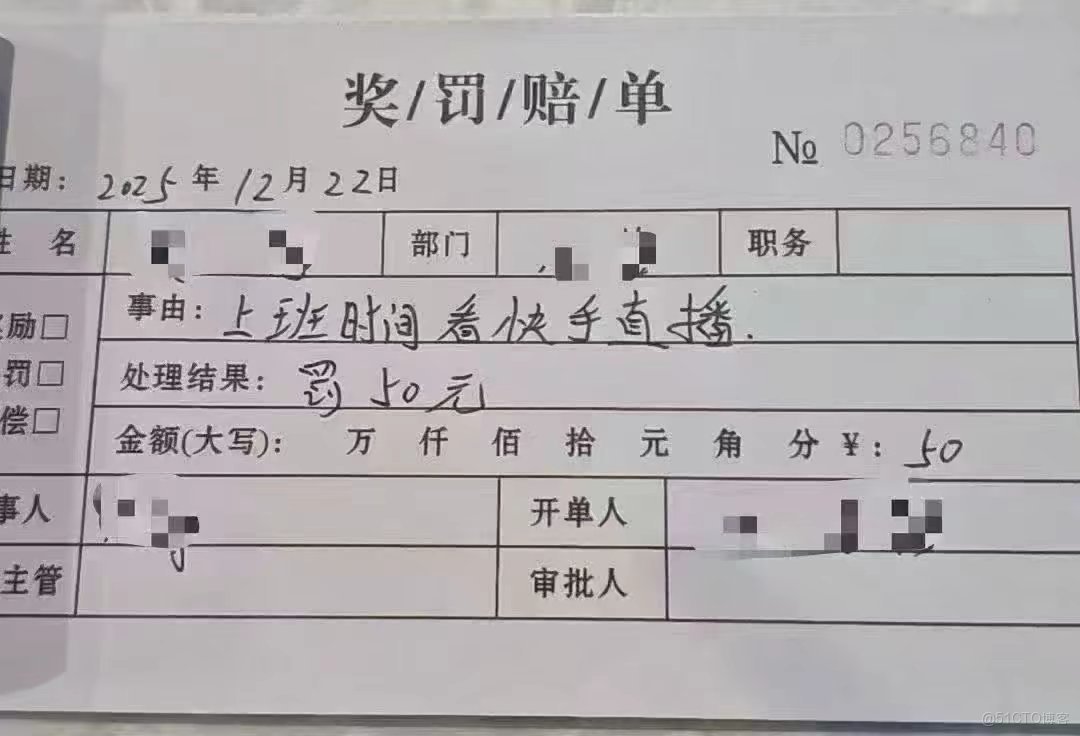 奖/罚/赔/单
№ 0256840
日期: 2025年12月22日
姓 名 部门 职务
事由: 上班时间看快手直播.
励□
处理结果: 罚50元
罚□
偿□
金额(大写): 万 仟 佰 拾 元 角 分 ¥: 50
事人 开单人
主管 审批人
@51CTO博客